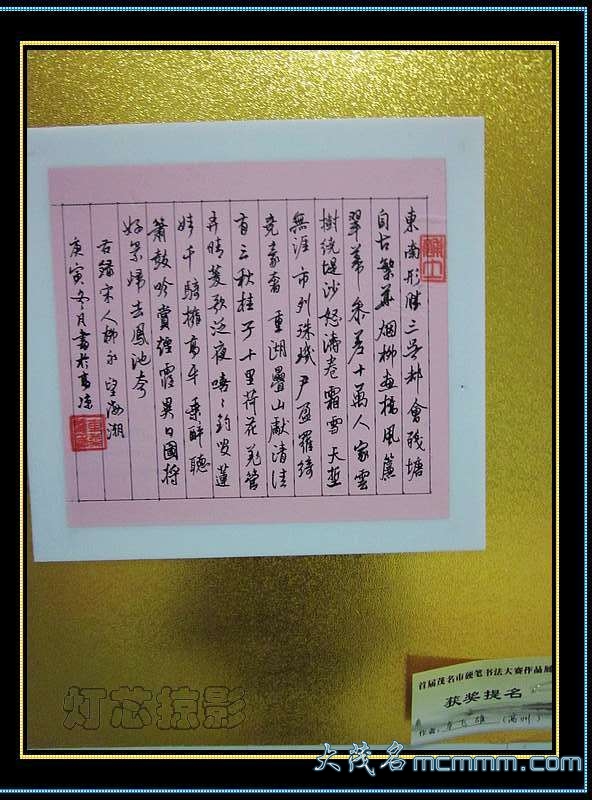 東南形勝三吳都會錢塘
自古繁華烟柳畫橋風簾
翠幕參差十萬人家雲
樹繞堤沙怒濤卷霜雪天塹
無涯市列珠璣户盈羅綺
競豪奢 重湖疊巘清佳
有三秋桂子十里荷花羌管
弄晴菱歌泛夜嘻々釣叟蓮
娃千騎擁高牙乘醉聽
簫鼓吟賞煙霞異日圖將
好景歸去鳳池夸
右錄宋人柳永望海潮
庚寅冬月書於高凉
首届茂名市硬笔书法大赛作品展
获奖提名
作者: 飞雄 (高州)
灯芯掠影
大茂名mcmmm.com